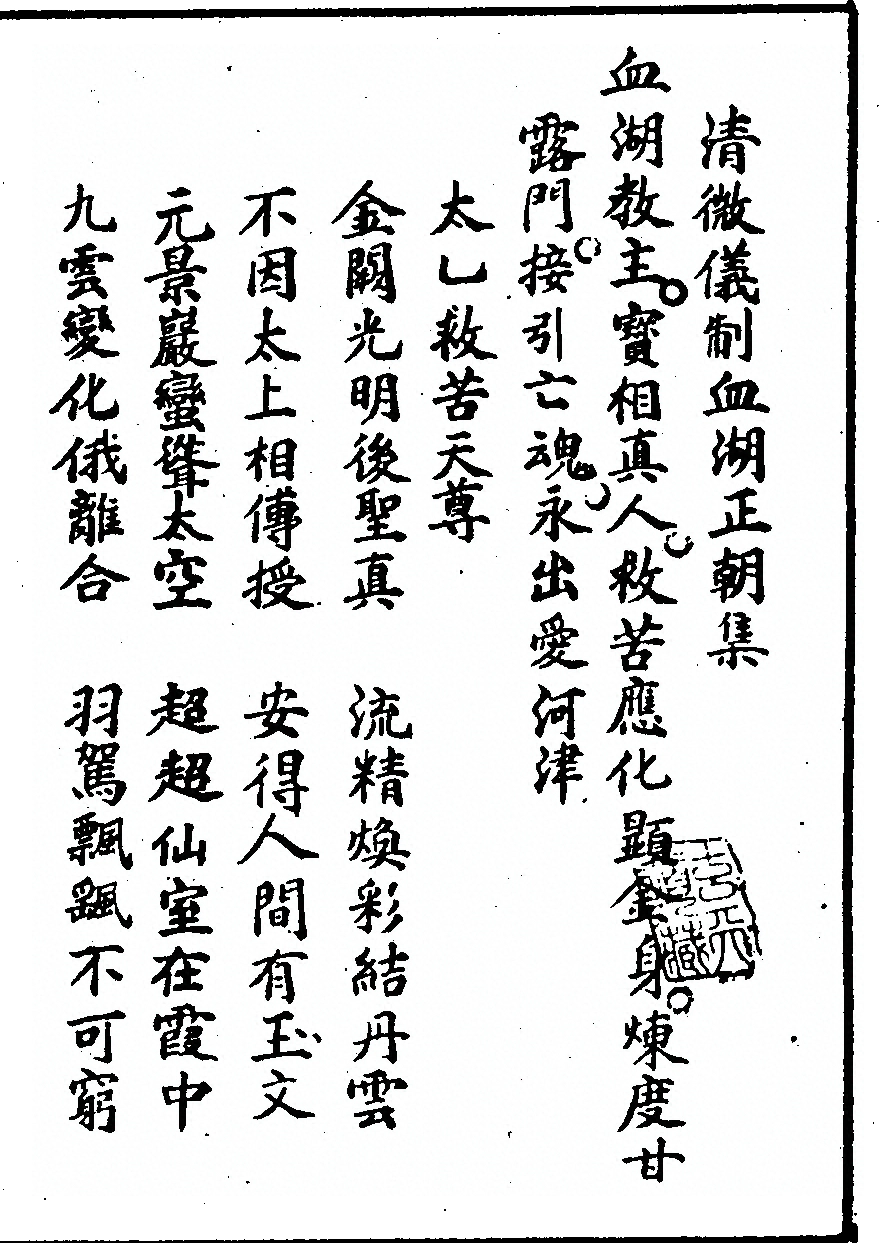 清微儀制血湖正朝集
血湖教主寶相真人救苦應化顯金身煉度甘
露門接引亡魂永出愛河津
太乚救苦天尊
金闕光明後聖真　流精煥彩結丹雲
不因太上相傳授　安得人間有玉文
元景巖巒聳太空　超超仙室在霞中
九雲變化俄離合　羽駕飄飖不可窮